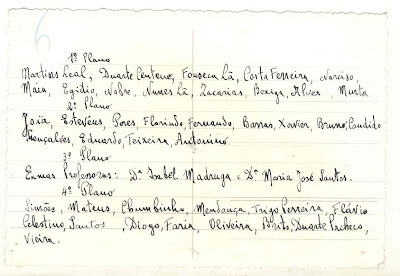 6
1º Plano
Martins Leal, Duarte Centeno, Fonseca Lã, Costa Ferreira, Narciso,
Maia, Egidio, Nobre, Nunes Lã, Zacarias, Bexiga, Alves, Murta
2º Plano
Joia, Estevéns, Peres, Florindo, Fernando, Barras, Xavier, Bruno, Candido
Gonçalves, Eduardo, Teixeira, Antonino
3º Plano
Exmas Professoras: Dª Isabel Madruga e Dª Maria José Santos.
4º Plano
Simões, Mateus, Chumbinho, Mendonça, Trigo Pereira, Flávio
Celestino, Santos, Diogo, Faria, Oliveira, Brito, Duarte Pacheco,
Vieira.